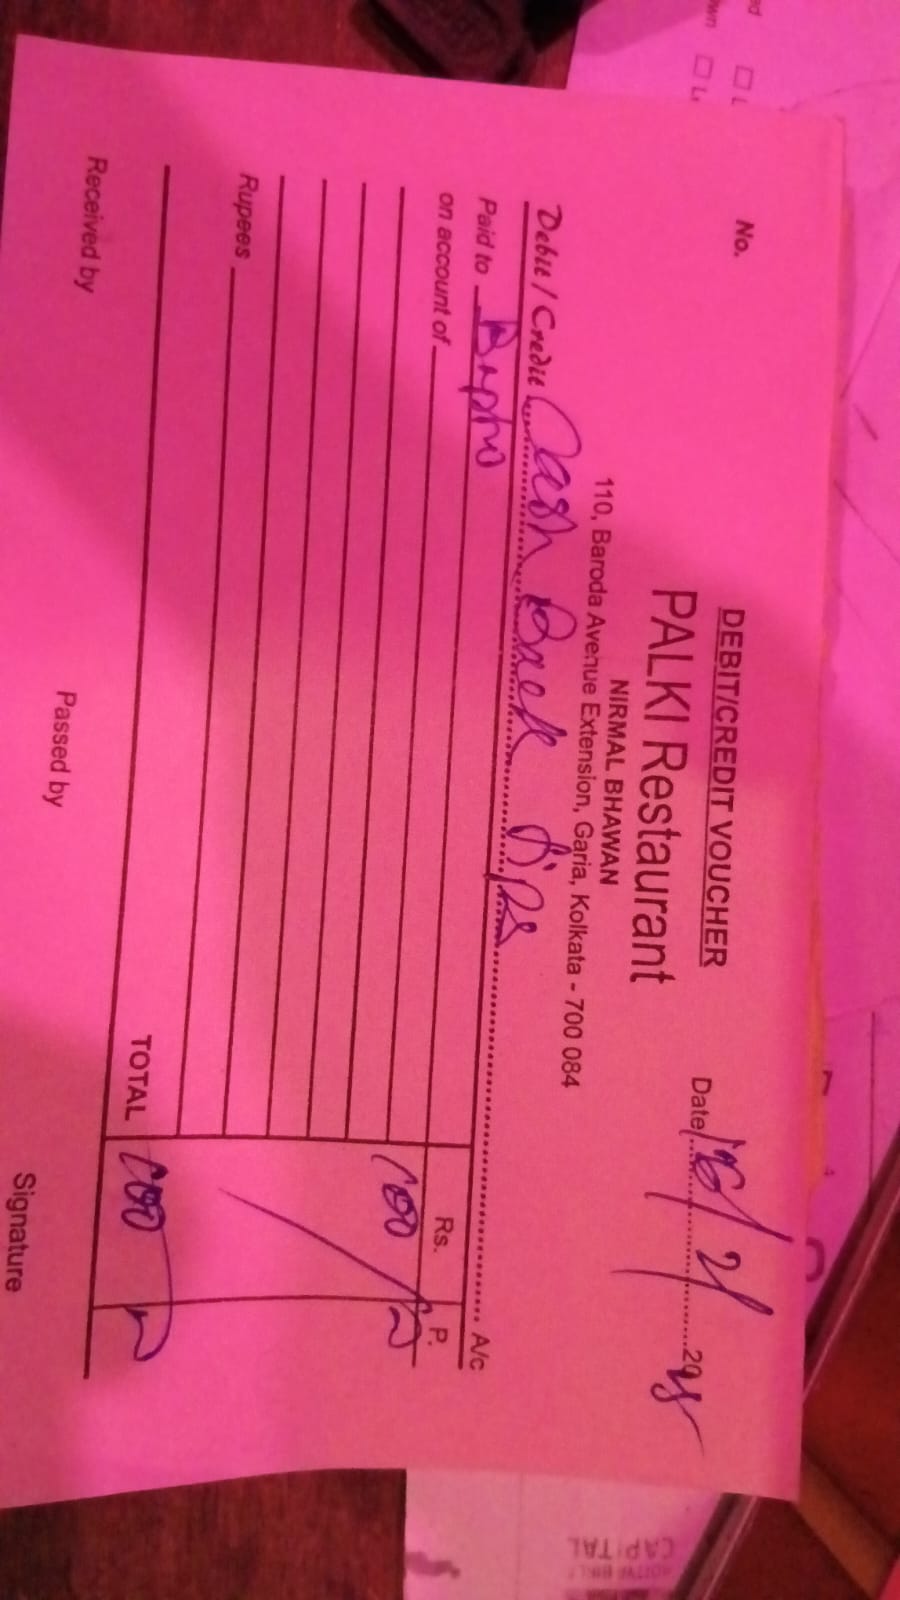 DEBIT/CREDIT VOUCHER
No.
PALKI Restaurant
Date
NIRMAL BHAWAN
110, Baroda Avenue Extension, Garia, Kolkata - 700 084
Debit / Credit Cash Back A/c
Paid to
on account of Rs. P.
100
Rupees
TOTAL 100
Received by Passed by Signature
CAPITAL